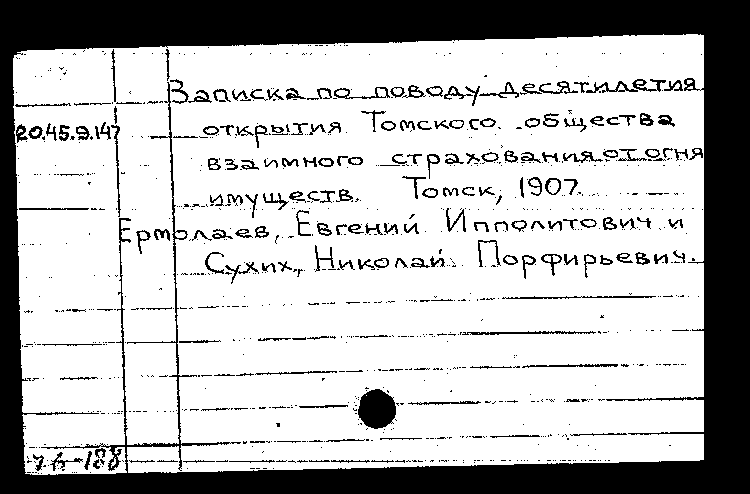 Записка по поводу десятилетия
20.45.9.147 открытия Томского общества
взаимного страхования от огня
имуществ. Томск, 1907.
Ермолаев, Евгений Ипполитович и
Сухих, Николай Порфирьевич.